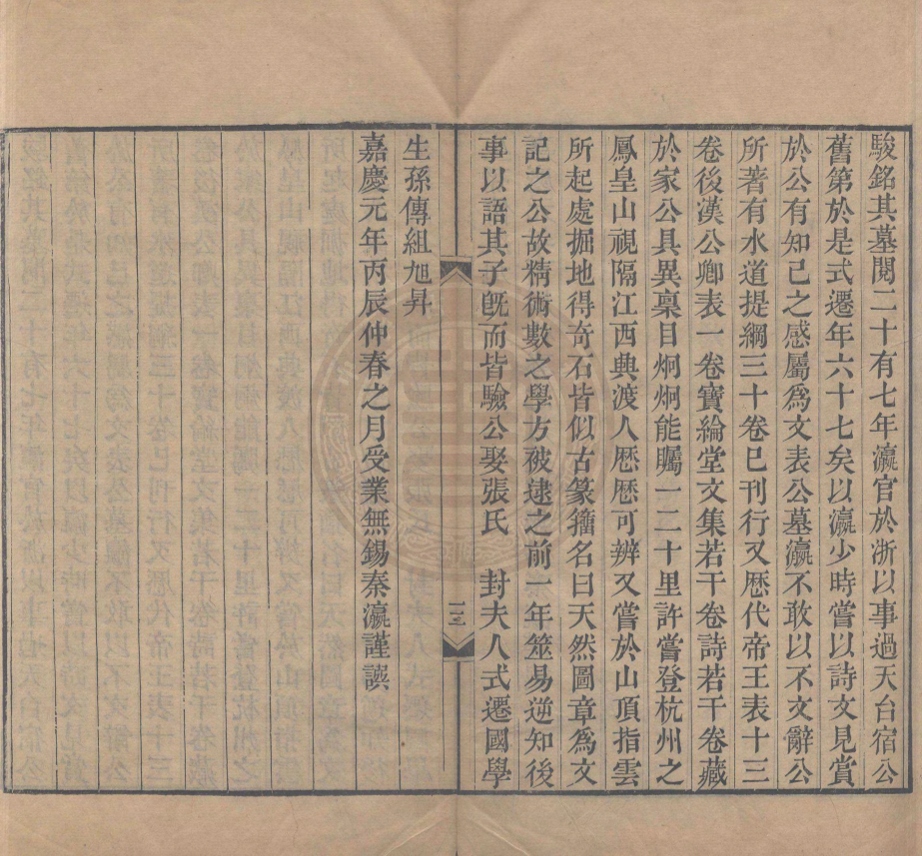 駿銘其墓閱二十有七年瀛官於浙以事過天台宿公
舊第於是式遷年六十七矣以瀛少時嘗以詩文見賞
於公有知己之感屬爲文表公墓瀛不敢以不文辭公
所著有水道提綱三十卷已刊行又歴代帝王表十三
卷後漢公卿表一卷寶綸堂文集若干卷詩若干卷藏
於家公具異稟目炯炯能矚一二十里許嘗登杭州之
鳳皇山視隔江西興渡人歴歴可辨又嘗於山頂指雲
所起處掘地得奇石皆似古篆籀名曰天然圖章爲文
記之公故精術數之學方被逮之前一年筮易逆知後
事以語其子旣而皆驗公娶張氏 封夫人式遷國學
生孫傳組旭昇
嘉慶元年丙辰仲春之月受業無錫秦瀛謹譔